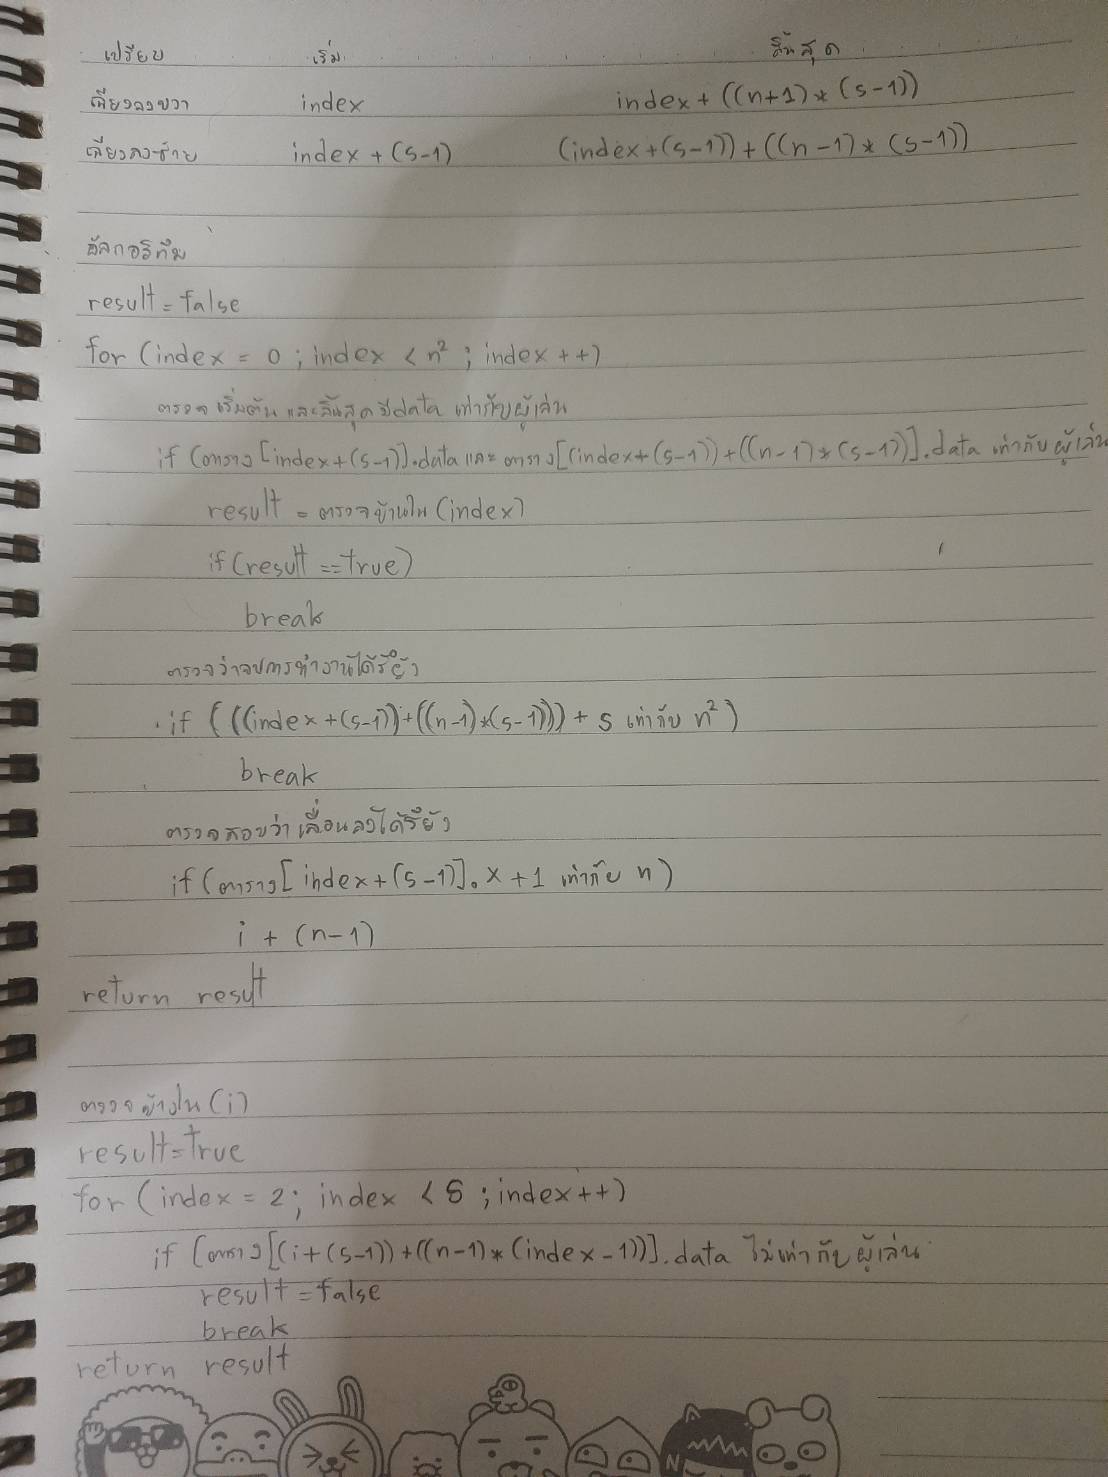 เปรียบ เริ่ม สิ้นสุด
เฉียงลงขวา index index + ((n+1) * (s-1))
เฉียงลงซ้าย index + (s-1) (index+(s-1)) + ((n-1) * (s-1))
อัลกอริทึม
result = false
for (index = 0 ; index < n² ; index ++)
ตรวจ เริ่มต้น และสิ้นสุด มี data เท่ากับผู้เล่น
if (ตาราง [index+(s-1)].data และ ตาราง [(index+(s-1))+((n-1)*(s-1))].data เท่ากับ ผู้เล่น
result = ตรวจข้างใน (index)
if (result == true)
break
ตรวจว่าจบการทำงานได้รึยัง
if (((index+(s-1))+((n-1)*(s-1))) + s เท่ากับ n²)
break
ตรวจสอบว่า เลื่อนลงได้รึยัง
if (ตาราง [index+(s-1)].x+1 เท่ากับ n)
i + (n-1)
return result
ตรวจข้างใน (i)
result = true
for (index = 2; index < s ; index++)
if [ตาราง [(i+(s-1))+((n-1)*(index-1))].data ไม่เท่ากับ ผู้เล่น
result = false
break
return result
N